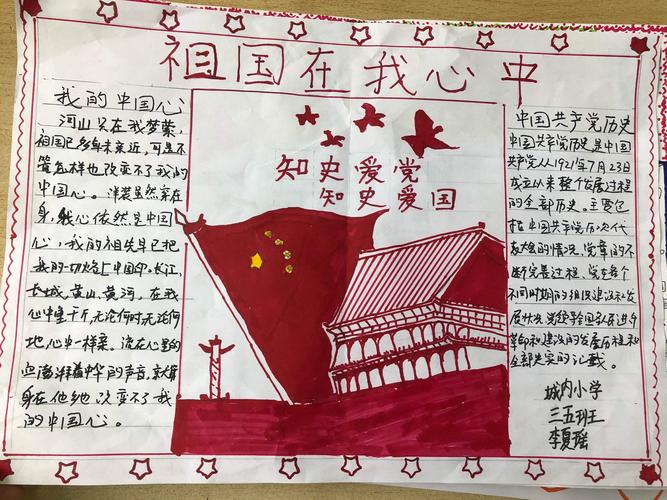 祖国在我心中
我的中国心
河山只在我梦萦,
祖国已多年未亲近,可是不
管怎样也改变不了我的
中国心。洋装虽然穿在
身,我心依然是中国
心,我的祖先早已把
我的一切烙上中国印。长江,
长城,黄山,黄河,在我
心中重千斤,无论何时无论何
地,心中一样亲。流在心里的
血澎湃着中华的声音,就算
身在他地改变不了我
的中国心。
知史爱党
知史爱国
中国共产党历史
中国共产党历史是中国
共产党从1921年7月23日
成立以来整个发展过程
的全部历史。主要包
括中国共产党历次代
表大会的情况、党章的不
断完善过程、党在每个
不同时期的组织建设和发
展状况、党领导全国人民进行
革命和建设的发展历程和
全部史实的记载。
城内小学
三五班
李夏瑶